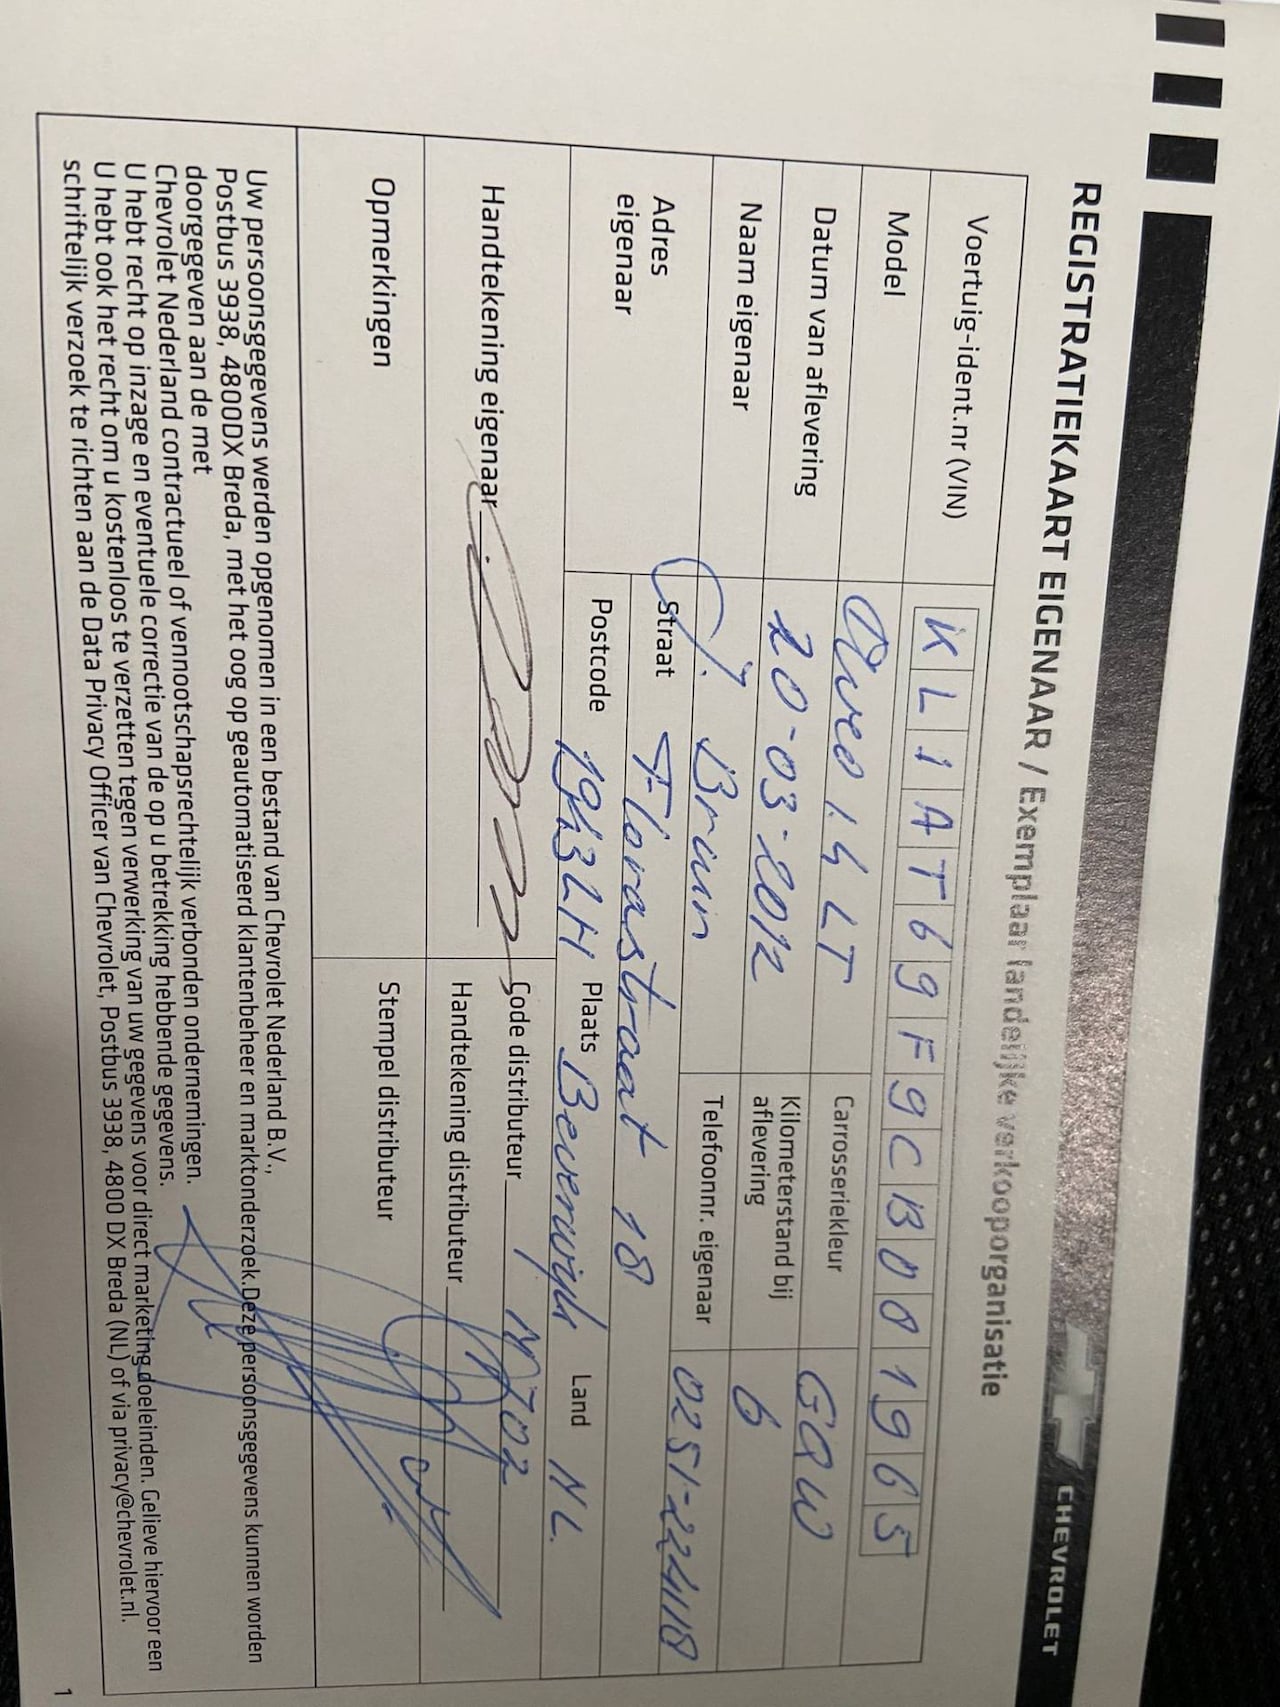 CHEVROLET
REGISTRATIEKAART EIGENAAR / Exemplaar landelijke verkooporganisatie
Voertuig-ident.nr (VIN) KL1AT69F9CB081965
Model Aveo 1.4 LT Carrosseriekleur GQW
Datum van aflevering 20-03-2012 Kilometerstand bij aflevering 6
Naam eigenaar J. Bruin Telefoonnr. eigenaar 0251-224118
Adres eigenaar Straat Florastraat 18
Postcode 1943LH Plaats Beverwijk Land NL.
Handtekening eigenaar Code distributeur
Handtekening distributeur
Opmerkingen Stempel distributeur
Uw persoonsgegevens werden opgenomen in een bestand van Chevrolet Nederland B.V.,
Postbus 3938, 4800DX Breda, met het oog op geautomatiseerd klantenbeheer en marktonderzoek.Deze persoonsgegevens kunnen worden
doorgegeven aan de met
Chevrolet Nederland contractueel of vennootschapsrechtelijk verbonden ondernemingen.
U hebt recht op inzage en eventuele correctie van de op u betrekking hebbende gegevens.
U hebt ook het recht om u kostenloos te verzetten tegen verwerking van uw gegevens voor direct marketing doeleinden. Gelieve hiervoor een
schriftelijk verzoek te richten aan de Data Privacy Officer van Chevrolet, Postbus 3938, 4800 DX Breda (NL) of via privacy@chevrolet.nl.
1